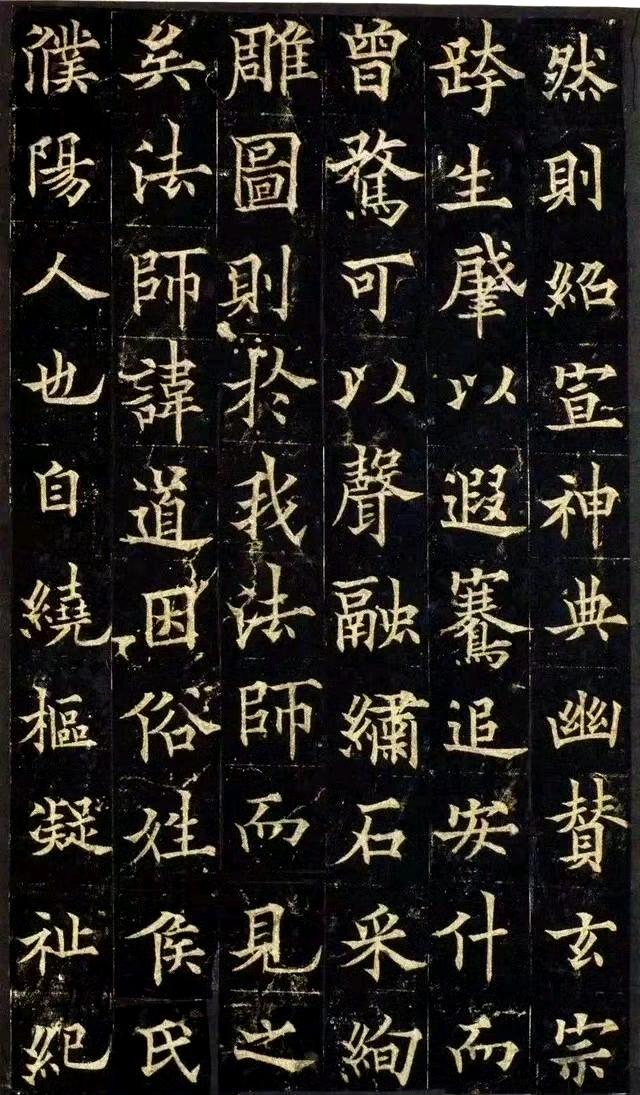 然則紹宣神典幽贊玄宗
跨生肇以遐騫追安什而
曾騖可以聲融繡石采絢
雕圖則於我法師而見之
矣法師諱道因俗姓侯氏
濮陽人也自繞樞凝祉紀